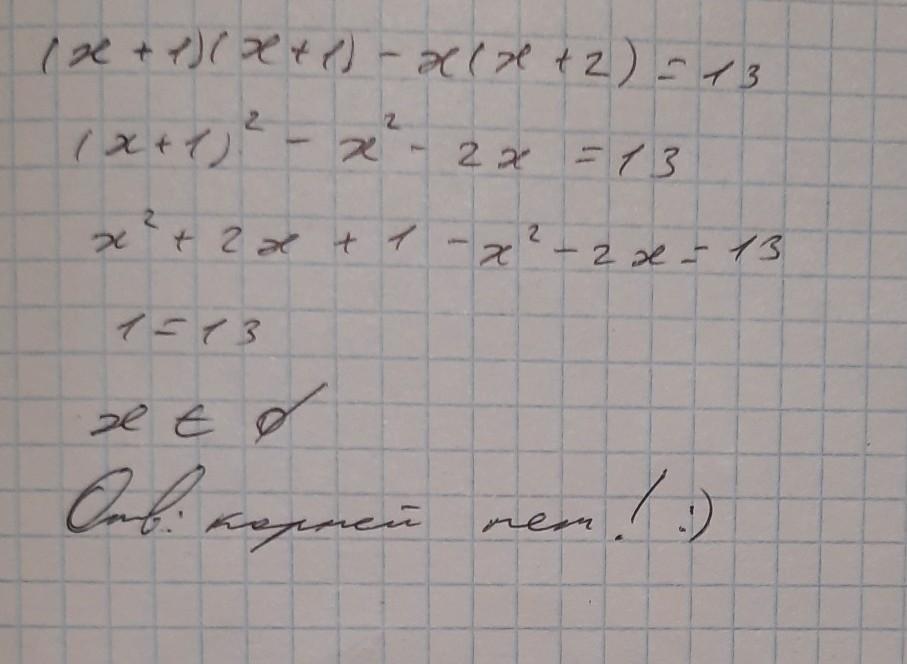 (x + 1)(x + 1) - x(x + 2) = 13
(x + 1)² - x² - 2x = 13
x² + 2x + 1 - x² - 2x = 13
1 = 13
x ∈ ∅
Отв: корней нет! :)